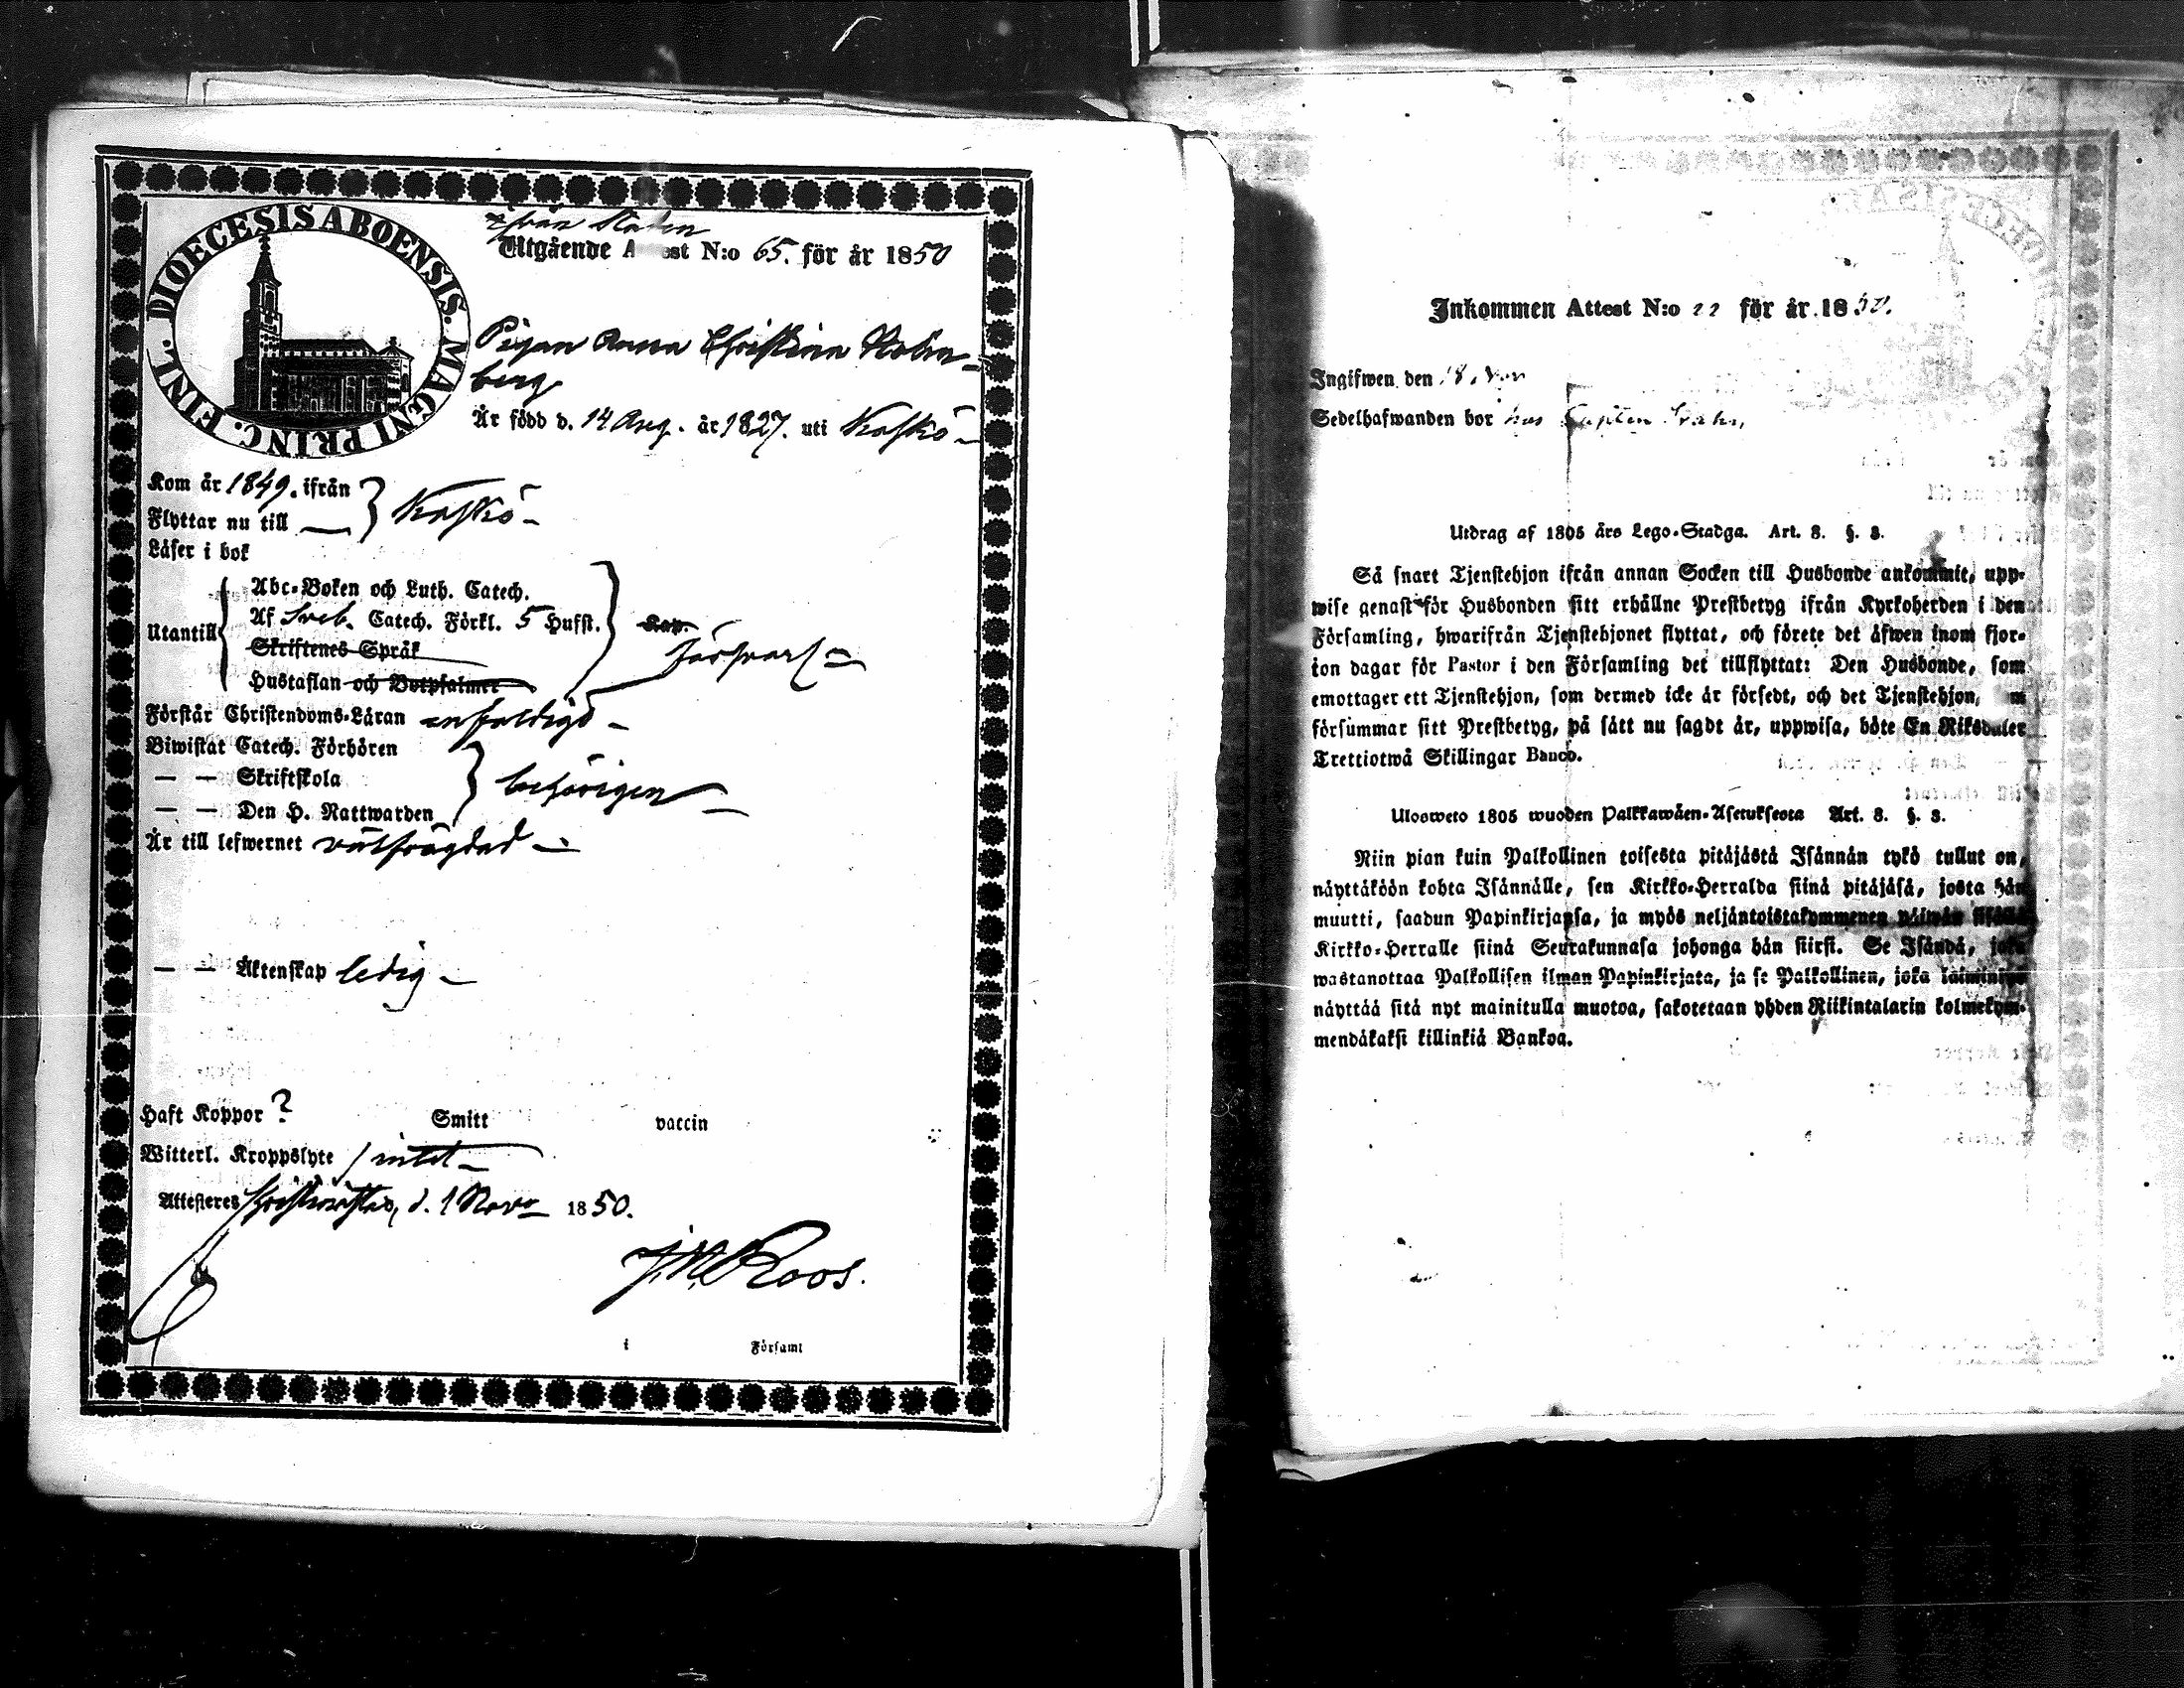 DIOECESIS ABOENSIS. MAGNI PRINC. FINL.
från Staden
Utgående Attest N:o 65. för år 1850
Pigan Anna Christina Holm-
berg
Är född d. 14 Aug. år 1827. uti Kaskö -
Kom år 1849. ifrån
Flyttar nu till — } Kaskö -
Läser i bok
Utantill
Abc-Boken och Luth. Catech.
Af Sveb. Catech. Förkl. 5 Hufst. Kap.
Skriftenes Språk försvarl -
Hustaflan och Botpsalmer
Förstår Christendoms-Läran enfaldigt -
Biwistat Catech. Förhören
— — Skriftskola } behörigen -
— — Den H. Nattwarden
Är till lefwernet välfrägdad -
— — Äktenskap ledig -
Haft Koppor ? Smitt vaccin
Witterl. Kroppslyte intet -
Attesteres Christinestad, d. 1 Nov. 1850.
Roos.
i Församl
Inkommen Attest N:o 22 för år 1850.
Ingifwen den 18 Nov
Sedelhafwanden bor hos Kapten
Utdrag af 1805 års Lego-Stadga. Art. 8. §. 3.
Så snart Tjenstehjon ifrån annan Socken till Husbonde ankommit, upp-
wise genast för Husbonden sitt erhållne Prestbetyg ifrån Kyrkoherden i den
Församling, hwarifrån Tjenstehjonet flyttat, och förete det äfwen inom fjor-
ton dagar för Pastor i den Församling det tillflyttat: Den Husbonde, som
emottager ett Tjenstehjon, som dermed icke är försedt, och det Tjenstehjon, m
försummar sitt Prestbetyg, på sätt nu sagdt är, uppwisa, böte En Riksdaler
Trettiotwå Skillingar Banco.
Ulosweto 1805 wuoden Palkkawäen-Asetuksesta Art. 8. §. 3.
Niin pian kuin Palkollinen toisesta pitäjästä Isännän tykö tullut on,
näyttäköön kohta Isännälle, sen Kirkko-Herralda siinä pitäjäsä, josta hän
muutti, saadun Papinkirjansa, ja myös neljäntoistakymmenen päiwän sisällä
Kirkko-Herralle siinä Seurakunnasa johonga hän siirsi. Se Isändä, joka
wastanottaa Palkollisen ilman Papinkirjata, ja se Palkollinen, joka laiminlyö
näyttää sitä nyt mainitulla muotoa, sakotetaan yhden Riikintalarin kolmekym-
mendäkaksi killinkiä Bankoa.